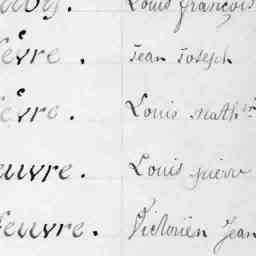 Louis françois
èvre. Jean Joseph
èvre. Louis Math in
euvre. Louis pierre
feuvre. Victorien Jean